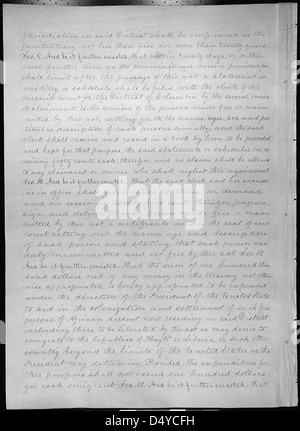 jurisdiction in said District shall be imprisoned in the
penitentiary not less than five nor more than twenty years.
Sec. 9. And be it further enacted, That within twenty days, or within
such further time as the commissioners herein provided for
shall limit, after the passage of this act, a statement in
writing or schedule shall be filed with the clerk of the
Circuit court for the District of Columbia, by the several owners
or claimants to the services of the persons made free or manu-
mitted by this act, setting forth the names, ages, sex, and par-
ticular description of such persons, severally; and the said
clerk shall receive and record, in a book by him to be provided
and kept for that purpose, the said statements or schedules on re-
ceiving fifty cents each therefor, and no claim shall be allowed
to any claimant or owner who shall neglect this requirement.
Sec. 10. And be it further enacted, That the said clerk and his successors
in office shall on demand
and on receipt of prepare,
sign and deliver free or manu-
mitted by this act, a certificate the seal of said
court, setting out the name, age and description
of such person, and stating that such person was
duly manumitted and set free by this act. Sec. 11.
And be it further enacted, That the sum of one hundred thou-
sand dollars, out of any money in the Treasury not other-
wise appropriated, is hereby appropriated, to be expended
under the direction of the President of the United States,
to aid in the colonization and settlement of such free
persons of African descent now residing in said District,
including those to be liberated by this act, as may desire to
emigrate to the Republics of Hayti or Liberia, or such other
country beyond the limits of the United States as the
President may determine: Provided, The expenditure for
this purpose shall not exceed one hundred dollars
for each emigrant. Sec. 12. And be it further enacted, That
alamy
D4YCFH